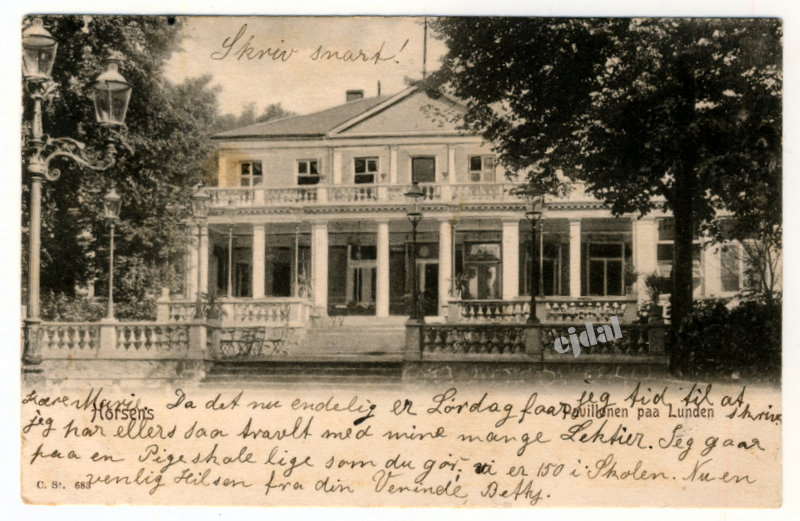 Skriv snart!
cjdal
Horsens
Pavillonen paa Lunden
Kære Marie. Da det nu endelig er Lørdag faar jeg tid til at skrive
jeg har ellers saa travlt med mine mange Lektier. Jeg gaar
paa en Pigeskole lige som du gør. vi er 150 i Skolen. Nu en
venlig Hilsen fra din Veninde Bethy.
C. St. 683